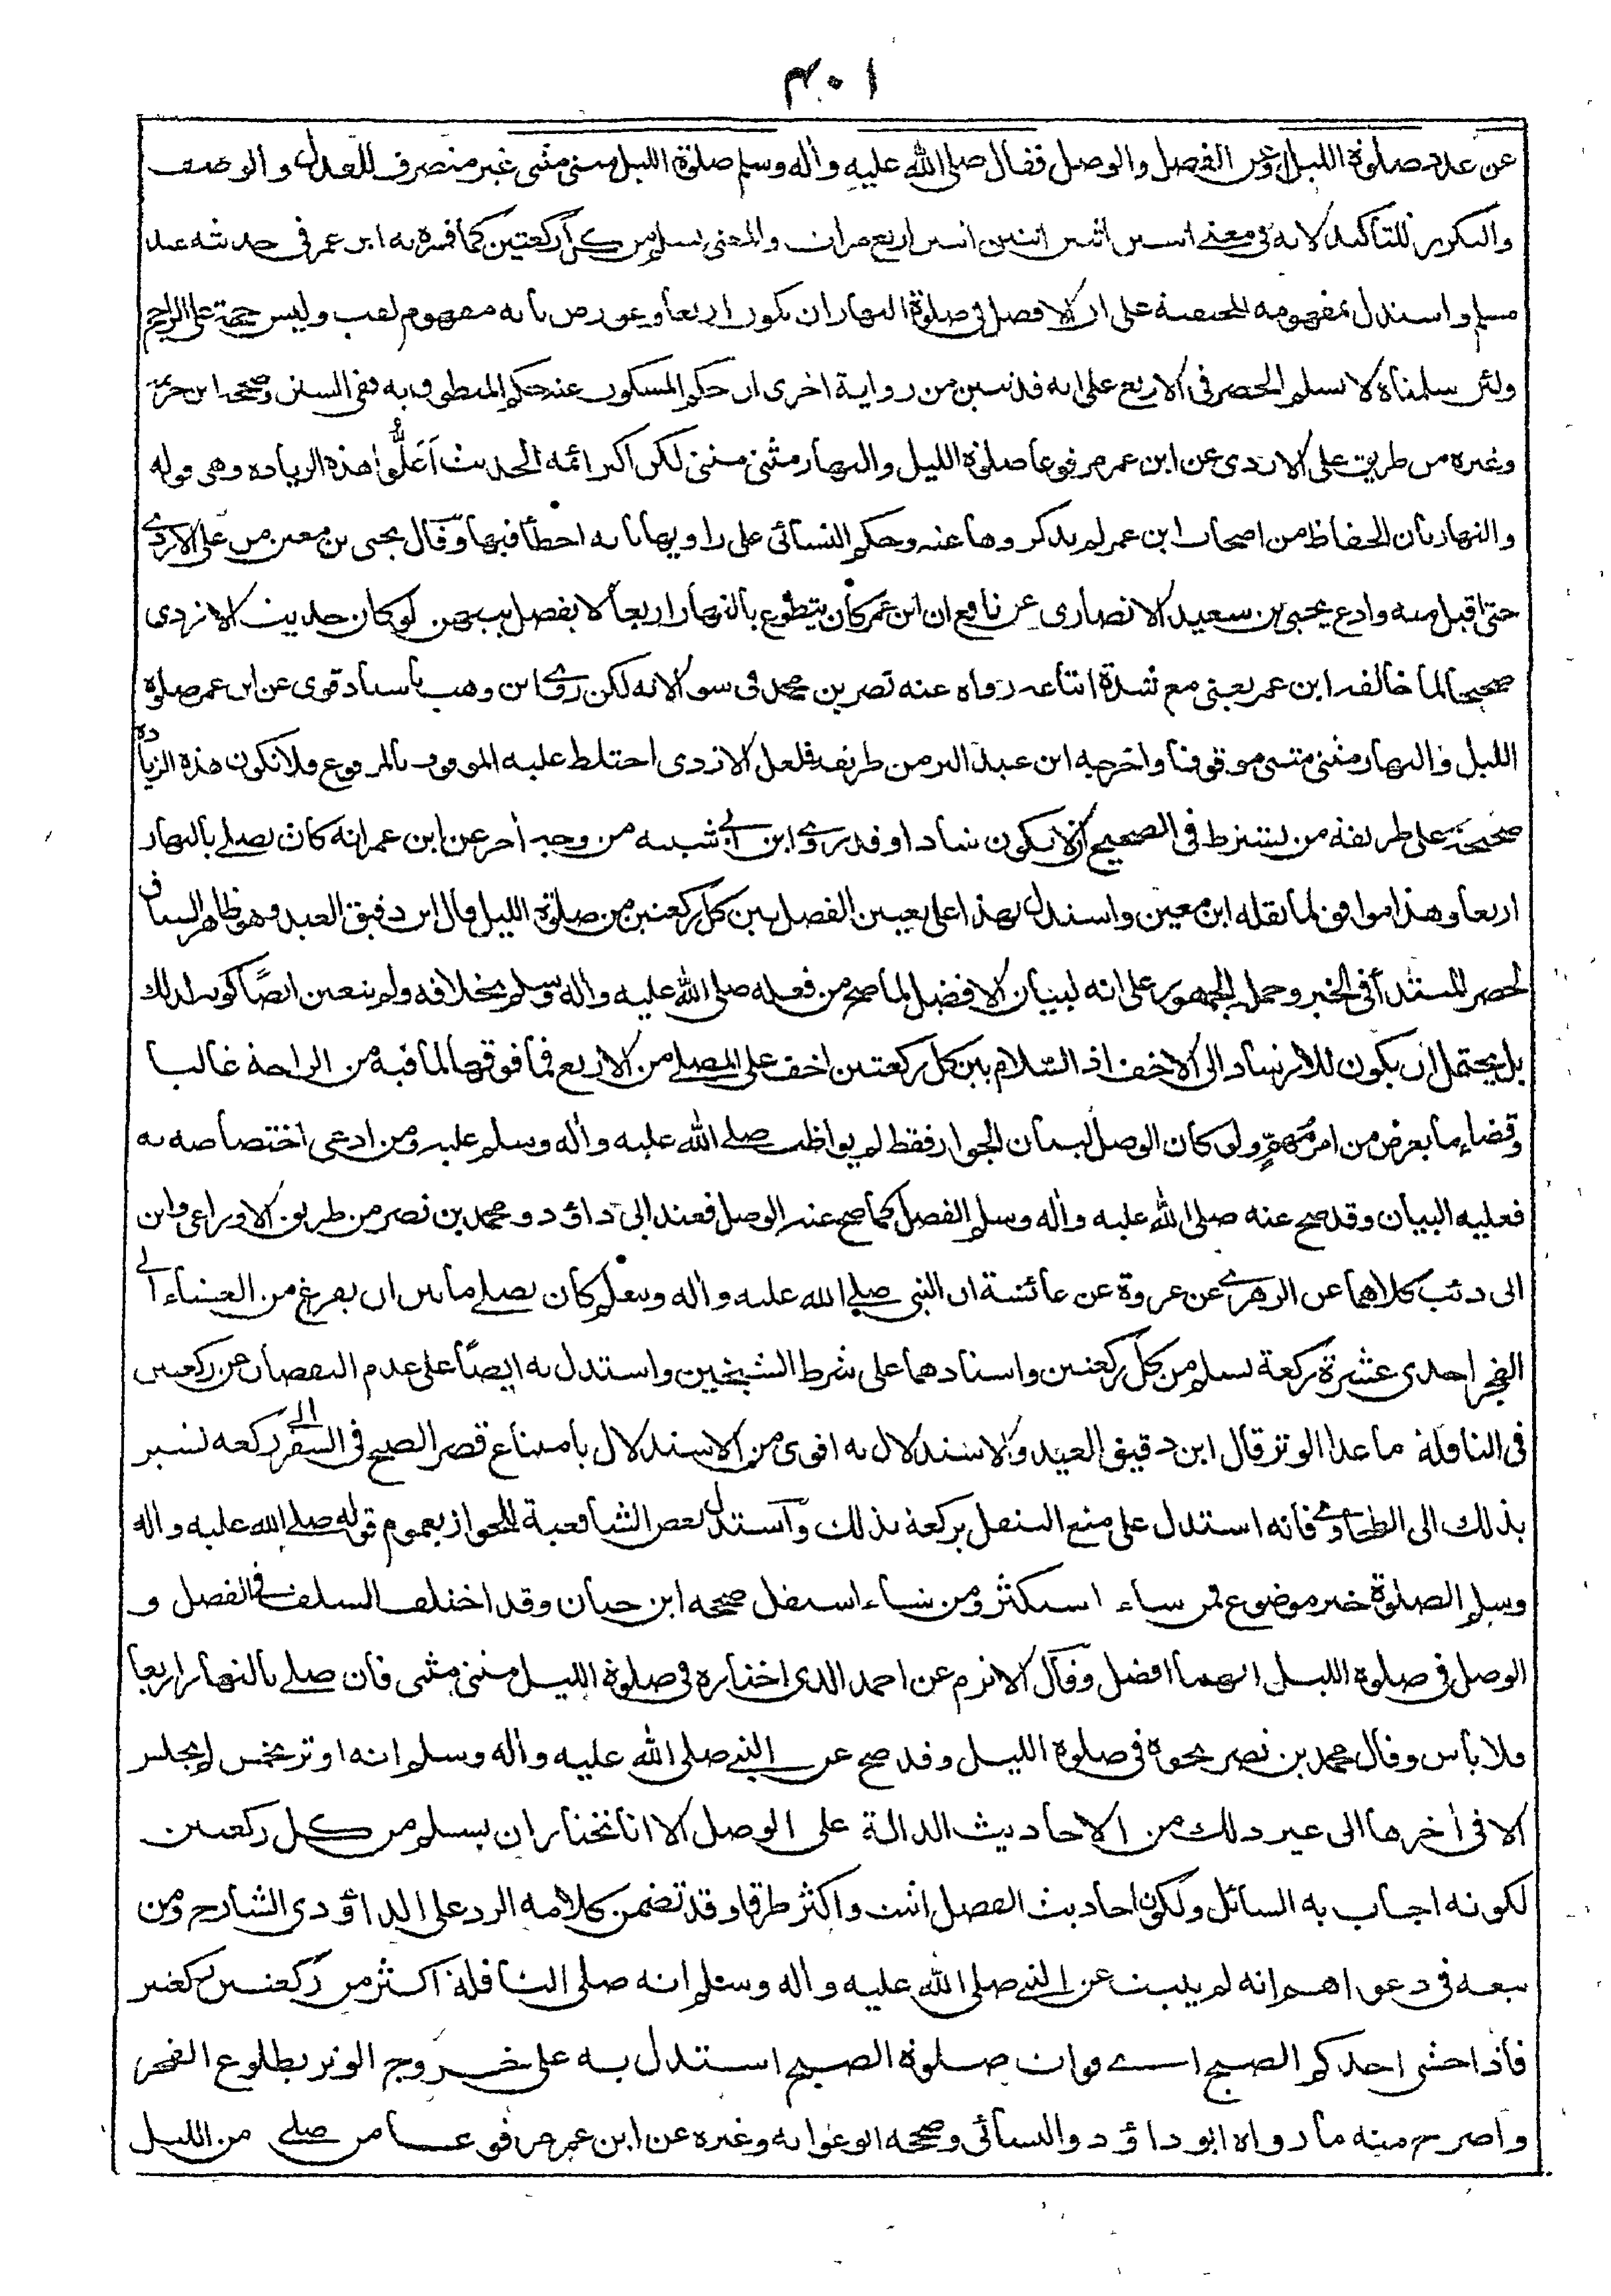 ٣٠١
عن عدد صلوة الليل او عن الفصل والوصل فقال صلى الله عليه وأله وسلم صلوة الليل مثنى مثنى غير منصرف للعدل والوصف
والتكرير للتأكيد لانه فى معنى اثنين اثنين اثنين اثنين اربع مرات والمعنى يسلم من كل ركعتين كما فسره به ابن عمر فى حديثه عند
مسلم واستدل بمفهومه الحنفية على ان الافضل فى صلوة النهار ان تكون اربعا وعورض بانه مفهوم لقب وليس حجة على الراجح
ولئن سلمناه لا نسلم الحصر فى الاربع على انه قد تبين من رواية اخرى ان حكم المسكوت عنه حكم المنطوق به ففى السنن وصححه ابن خزيمة
وغيره من طريق على الازدى عن ابن عمر مرفوعا صلوة الليل والنهار مثنى مثنى لكن اكثر ائمة الحديث أَعَلُّوا هذه الزيادة وهى قوله
والنهار بان الحفاظ من اصحاب ابن عمر لم يذكروها عنه وحكم النسائى على راويها بانه اخطأ فيها وقال يحيى بن معين من على الازدى
حتى اقبل منه وادع يحيى بن سعيد الانصارى عن نافع ان ابن عمر كان يتطوع بالنهار اربعا لا يفصل بينهن لو كان حديث الازدى
صحيحا لما خالفه ابن عمر يعنى مع شدة اتباعه رواه عنه نصر بن محمد فى سوالاته لكن روى ابن وهب باسناد قوى عن ابن عمر صلوة
الليل والنهار مثنى مثنى موقوفا واخرجه ابن عبد البر من طريقه فلعل الازدى اختلط عليه الموقوف بالمرفوع فلا تكون هذه الزيادة
صحيحة على طريقة من يشترط فى الصحيح أن لا يكون شاذا وقد روى ابن أبى شيبه من وجه أخر عن ابن عمر انه كان يصلى بالنهار
اربعا وهذا موافق لما نقله ابن معين واستدل بهذا على تعيين الفصل بين كل ركعتين من صلوة الليل قال ابن دقيق العيد وهو ظاهر السياق
لحصر المبتدأ فى الخبر وحمل الجمهور على انه لبيان الافضل لما صح من فعله صلى الله عليه وأله وسلم بخلافه ولم يتعين ايضًا كونه لذلك
بل يحتمل ان يكون للارشاد الى الاخف اذ السّلام بين كل ركعتين اخف على المصلى من الاربع فما فوقها لما فيه من الراحة غالبا
وقضاء ما يعرض من امر مُهِمٍّ ولو كان الوصل لبيان الجواز فقط لم يواظب صلى الله عليه وأله وسلم عليه ومن ادعى اختصاصه به
فعليه البيان وقد صح عنه صلى الله عليه وأله وسلم الفصل كما صح عنه الوصل فعند ابى داؤد ومحمد بن نصر من طريق الاوزاعى وابن
ابى ذئب كلاهما عن الزهرى عن عروة عن عائشة ان النبى صلى الله عليه وأله وسلم كان يصلى ما بين ان يفرغ من العشاء الى
الفجر احدى عشرة ركعة يسلم من كل ركعتين واسنادهما على شرط الشيخين واستدل به ايضًا على عدم النقصان عن ركعتين
فى النافلة ما عدا الوتر قال ابن دقيق العيد والاستدلال به اقوى من الاستدلال بامتناع قصر الصبح فى السفر الى ركعة يشير
بذلك الى الطحاوى فانه استدل على منع التنفل بركعة بذلك واستدل بعض الشافعية للجواز بعموم قوله صلى الله عليه وأله
وسلم الصلوة خير موضوع فمن شاء استكثر ومن شاء استقل صححه ابن حبان وقد اختلف السلف فى الفصل و
الوصل فى صلوة الليل ايهما افضل وقال الاثرم عن احمد الذى اختاره فى صلوة الليل مثنى مثنى فان صلى بالنهار اربعا
فلا باس وقال محمد بن نصر نحوه فى صلوة الليل وقد صح عن النبى صلى الله عليه وأله وسلم انه اوتر بخمس لم يجلس
الا فى أخرها الى غير ذلك من الاحاديث الدالة على الوصل الا انا نختار ان يسلم من كل ركعتين
لكونه اجاب به السائل ولكون احاديث الفصل اثبت واكثر طرقا وقد تضمن كلامه الرد على الداؤدى الشارح ومن
تبعه فى دعواهم انه لم يثبت عن النبى صلى الله عليه وأله وسلم انه صلى النافلة اكثر من ركعتين ركعتين
فاذا خشى احدكم الصبح اى فوات صلوة الصبح استدل به على خروج الوتر بطلوع الفجر
واصرح منه ما رواه ابو داؤد والنسائى وصححه ابو عوانه وغيره عن ابن عمر مرفوعا من صلى من الليل